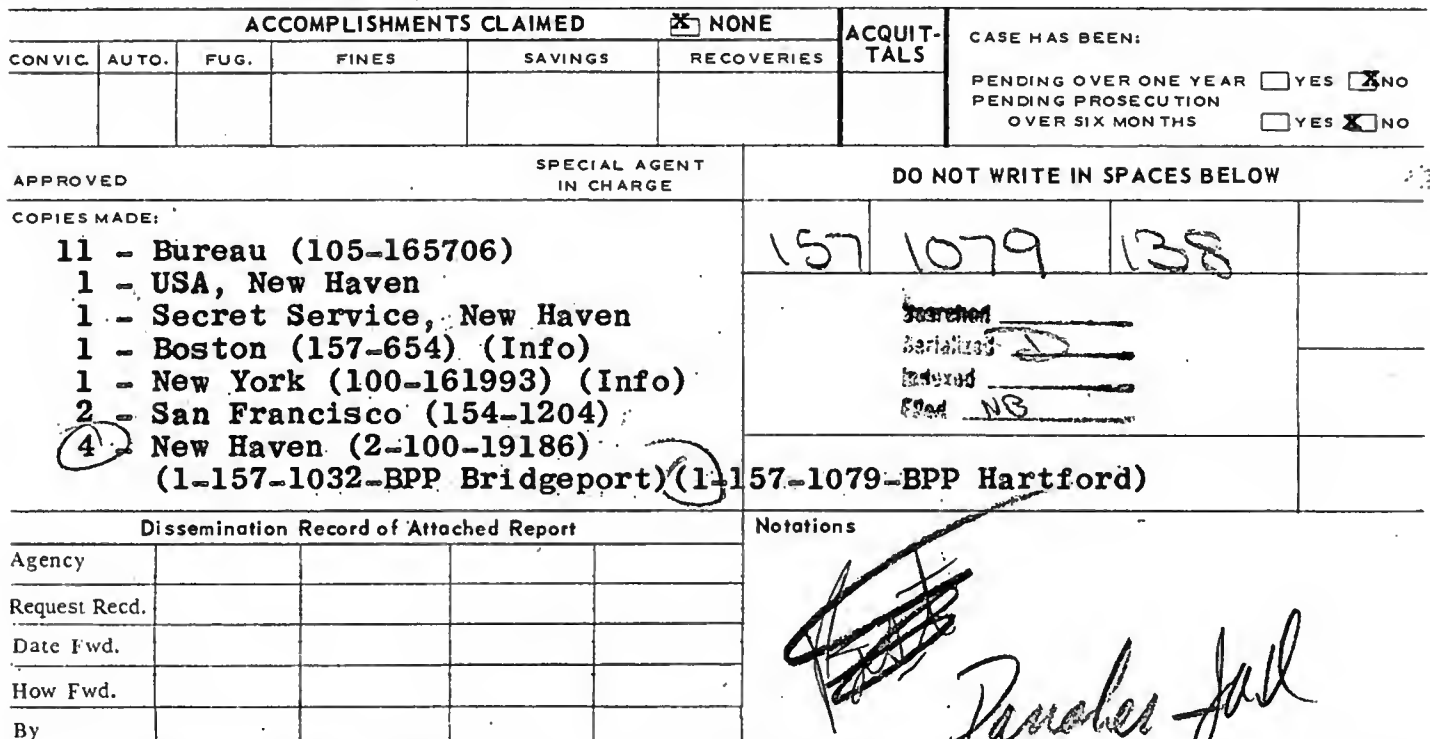 ACCOMPLISHMENTS CLAIMED X NONE
ACQUIT-
TALS
CASE HAS BEEN:
CONVIC. AUTO. FUG. FINES SAVINGS RECOVERIES
PENDING OVER ONE YEAR YES X NO
PENDING PROSECUTION
OVER SIX MONTHS YES X NO
APPROVED
SPECIAL AGENT
IN CHARGE
DO NOT WRITE IN SPACES BELOW
COPIES MADE:
11 - Bureau (105-165706)
1 - USA, New Haven
1 - Secret Service, New Haven
1 - Boston (157-654) (Info)
1 - New York (100-161993) (Info)
2 - San Francisco (154-1204)
4 - New Haven (2-100-19186)
(1-157-1032-BPP Bridgeport)(1-157-1079-BPP Hartford)
157 1079 138
Searched
Serialized
Indexed
Filed NB
Dissemination Record of Attached Report
Notations
Agency
Request Recd.
Date Fwd.
How Fwd.
By